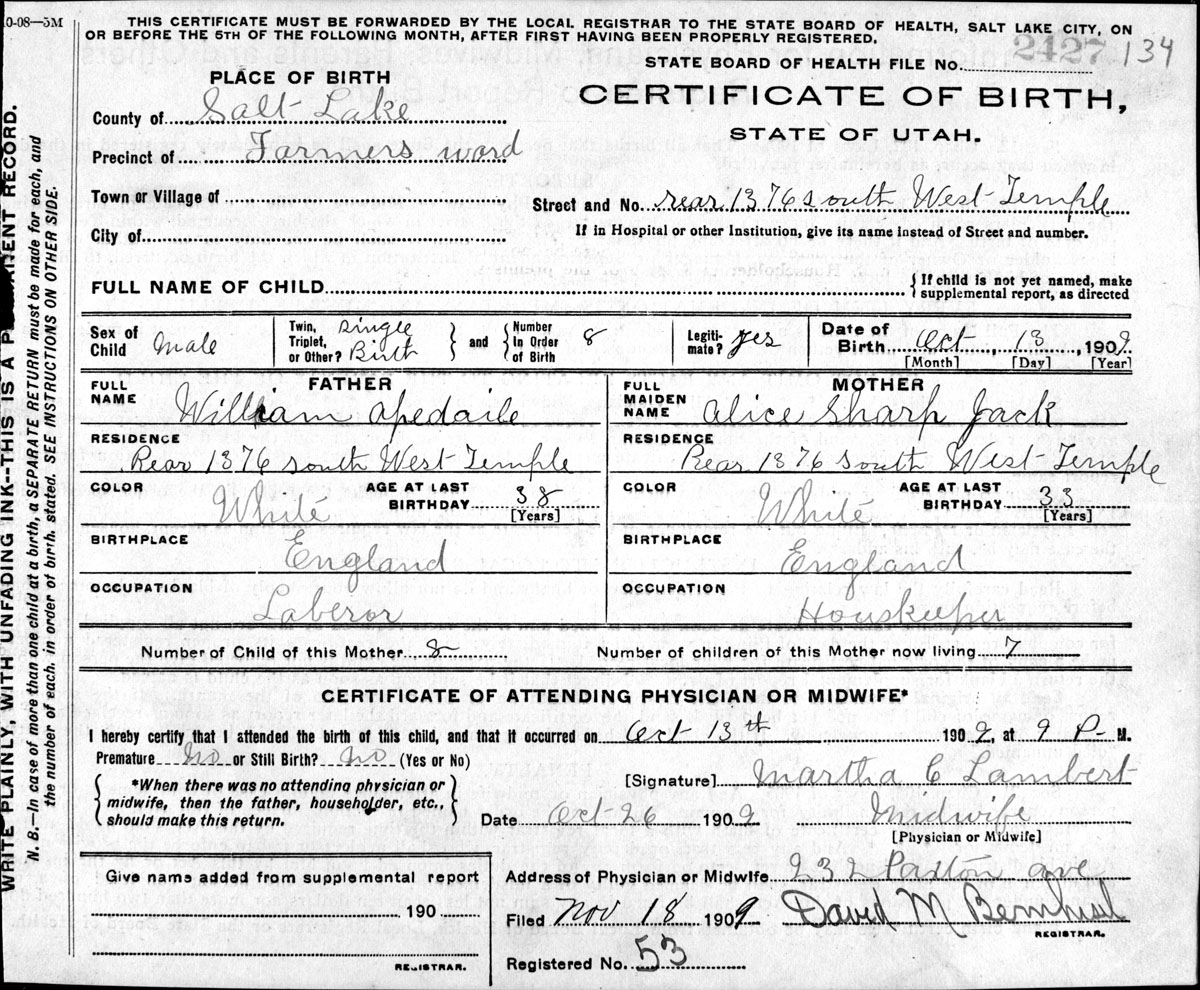 10-08—5M
THIS CERTIFICATE MUST BE FORWARDED BY THE LOCAL REGISTRAR TO THE STATE BOARD OF HEALTH, SALT LAKE CITY, ON
OR BEFORE THE 5TH OF THE FOLLOWING MONTH, AFTER FIRST HAVING BEEN PROPERLY REGISTERED.
STATE BOARD OF HEALTH FILE No. 2427 134
PLACE OF BIRTH
CERTIFICATE OF BIRTH,
STATE OF UTAH.
County of Salt Lake
Precinct of Farmers ward
Town or Village of
Street and No. rear 1376 south West Temple
City of
If in Hospital or other Institution, give its name instead of Street and number.
FULL NAME OF CHILD
{ If child is not yet named, make
supplemental report, as directed
Sex of Child Male
Twin, Triplet, or Other? Single Birth
and { Number In Order of Birth 8
Legiti-mate? yes
Date of Birth Oct, 13, 1909.
[Month] [Day] [Year]
FATHER
FULL NAME William Apedaile
RESIDENCE
Rear 1376 south West Temple
COLOR White AGE AT LAST BIRTHDAY 38 [Years]
BIRTHPLACE England
OCCUPATION
Laberor
MOTHER
FULL MAIDEN NAME Alice Sharp Jack
RESIDENCE
Rear 1376 south West Temple
COLOR White AGE AT LAST BIRTHDAY 33 [Years]
BIRTHPLACE England
OCCUPATION
Houskeeper
Number of Child of this Mother 8 Number of children of this Mother now living 7
CERTIFICATE OF ATTENDING PHYSICIAN OR MIDWIFE*
I hereby certify that I attended the birth of this child, and that it occurred on Oct 13th 1909, at 9 P. M.
Premature No or Still Birth? No (Yes or No)
*When there was no attending physician or
midwife, then the father, householder, etc.,
should make this return.
[Signature] Martha C Lambert
Date Oct-26 1909 Midwife
[Physician or Midwife]
Address of Physician or Midwife 232 Paxton ave
Filed Nov 18 1909 David M Bernhisl
REGISTRAR.
Registered No. 53
Give name added from supplemental report
190
REGISTRAR.
WRITE PLAINLY, WITH UNFADING INK--THIS IS A RECORD.
N. B.—In case of more than one child at a birth, a SEPARATE RETURN must be made for each, and
the number of each, in order of birth, stated. SEE INSTRUCTIONS ON OTHER SIDE.